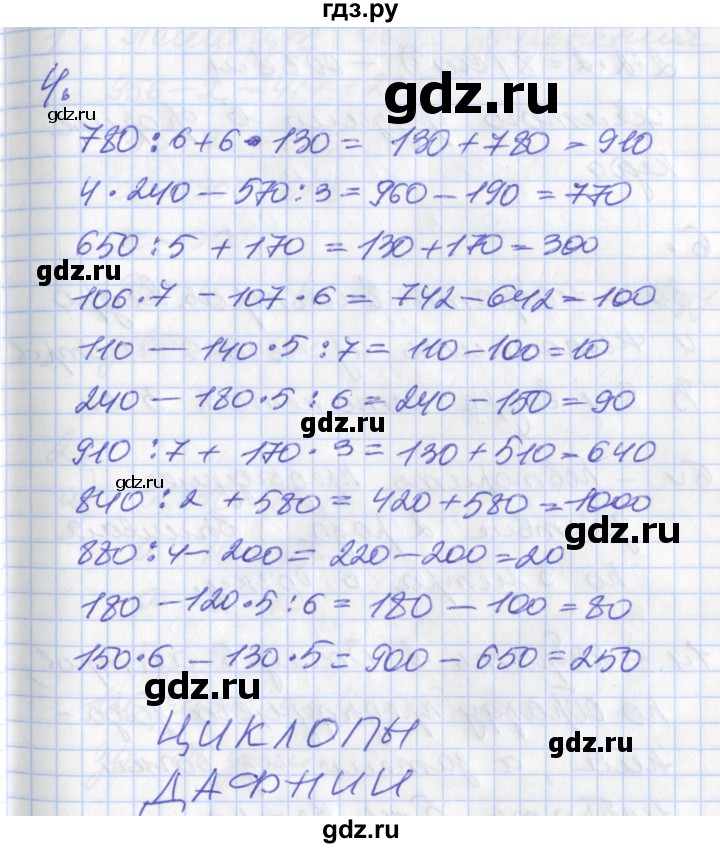 гдз.ру
4.
gdz.ru
780 : 6 + 6 • 130 = 130 + 780 = 910
4 • 240 – 570 : 3 = 960 – 190 = 770
650 : 5 + 170 = 130 + 170 = 300
gdz.ru
106 • 7 – 107 • 6 = 742 – 642 = 100
110 – 140 • 5 : 7 = 110 – 100 = 10
gdz.ru
240 – 180 • 5 : 6 = 240 – 150 = 90
gdz.ru
910 : 7 + 170 • 3 = 130 + 510 = 640
gdz.ru
840 : 2 + 580 = 420 + 580 = 1000
gdz.ru
880 : 4 – 200 = 220 – 200 = 20
180 – 120 • 5 : 6 = 180 – 100 = 80
150 • 6 – 130 • 5 = 900 – 650 = 250
gdz.ru
ЦИКЛОПЫ
gdz.ru
ДАФНИИ
gdz.ru
gdz.ru